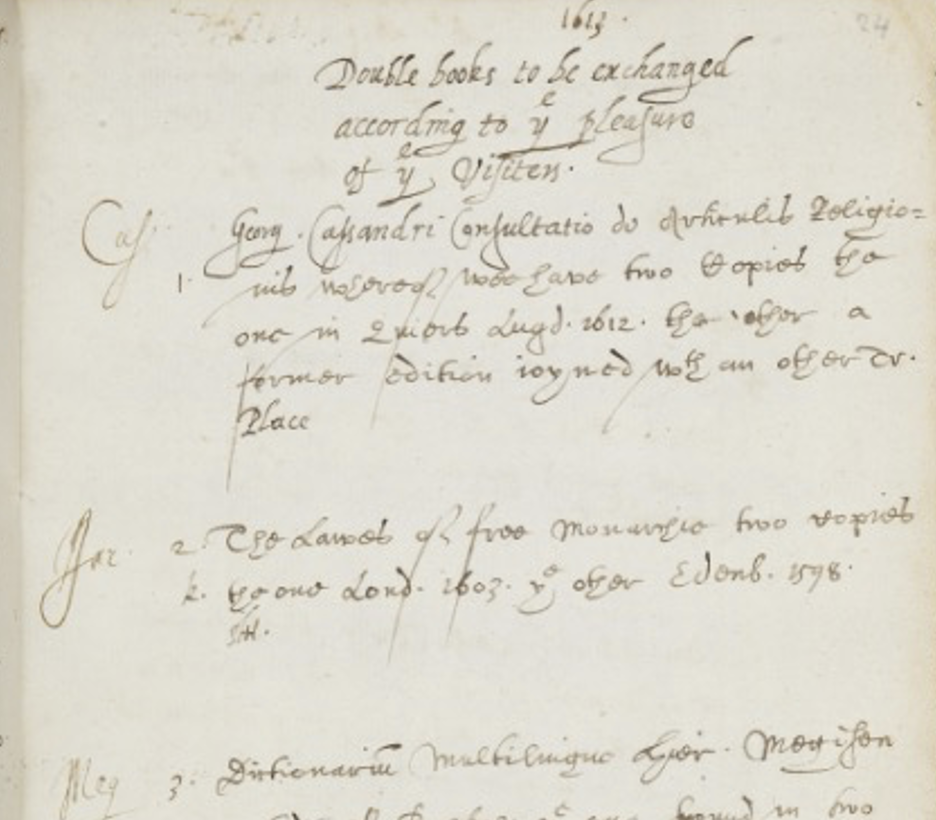 1613.
24
Double books to be exchanged
according to yͤ pleasure
of yͤ Visiters.
Cass. Georg. Cassandri Consultatio de Articulis Religio=
1. nis whereof wee have two Copies the
one in Lugd. 1612. the other a
former edition ioyned wth an other Tr.
Place
Jac. 2. The Lawes of free Monarchie two copies
k. the one Lond. 1603. yͤ other Edenb. 1598.
Meg 3. Dictionariū Multilingue Hier. Megisen
bound in two